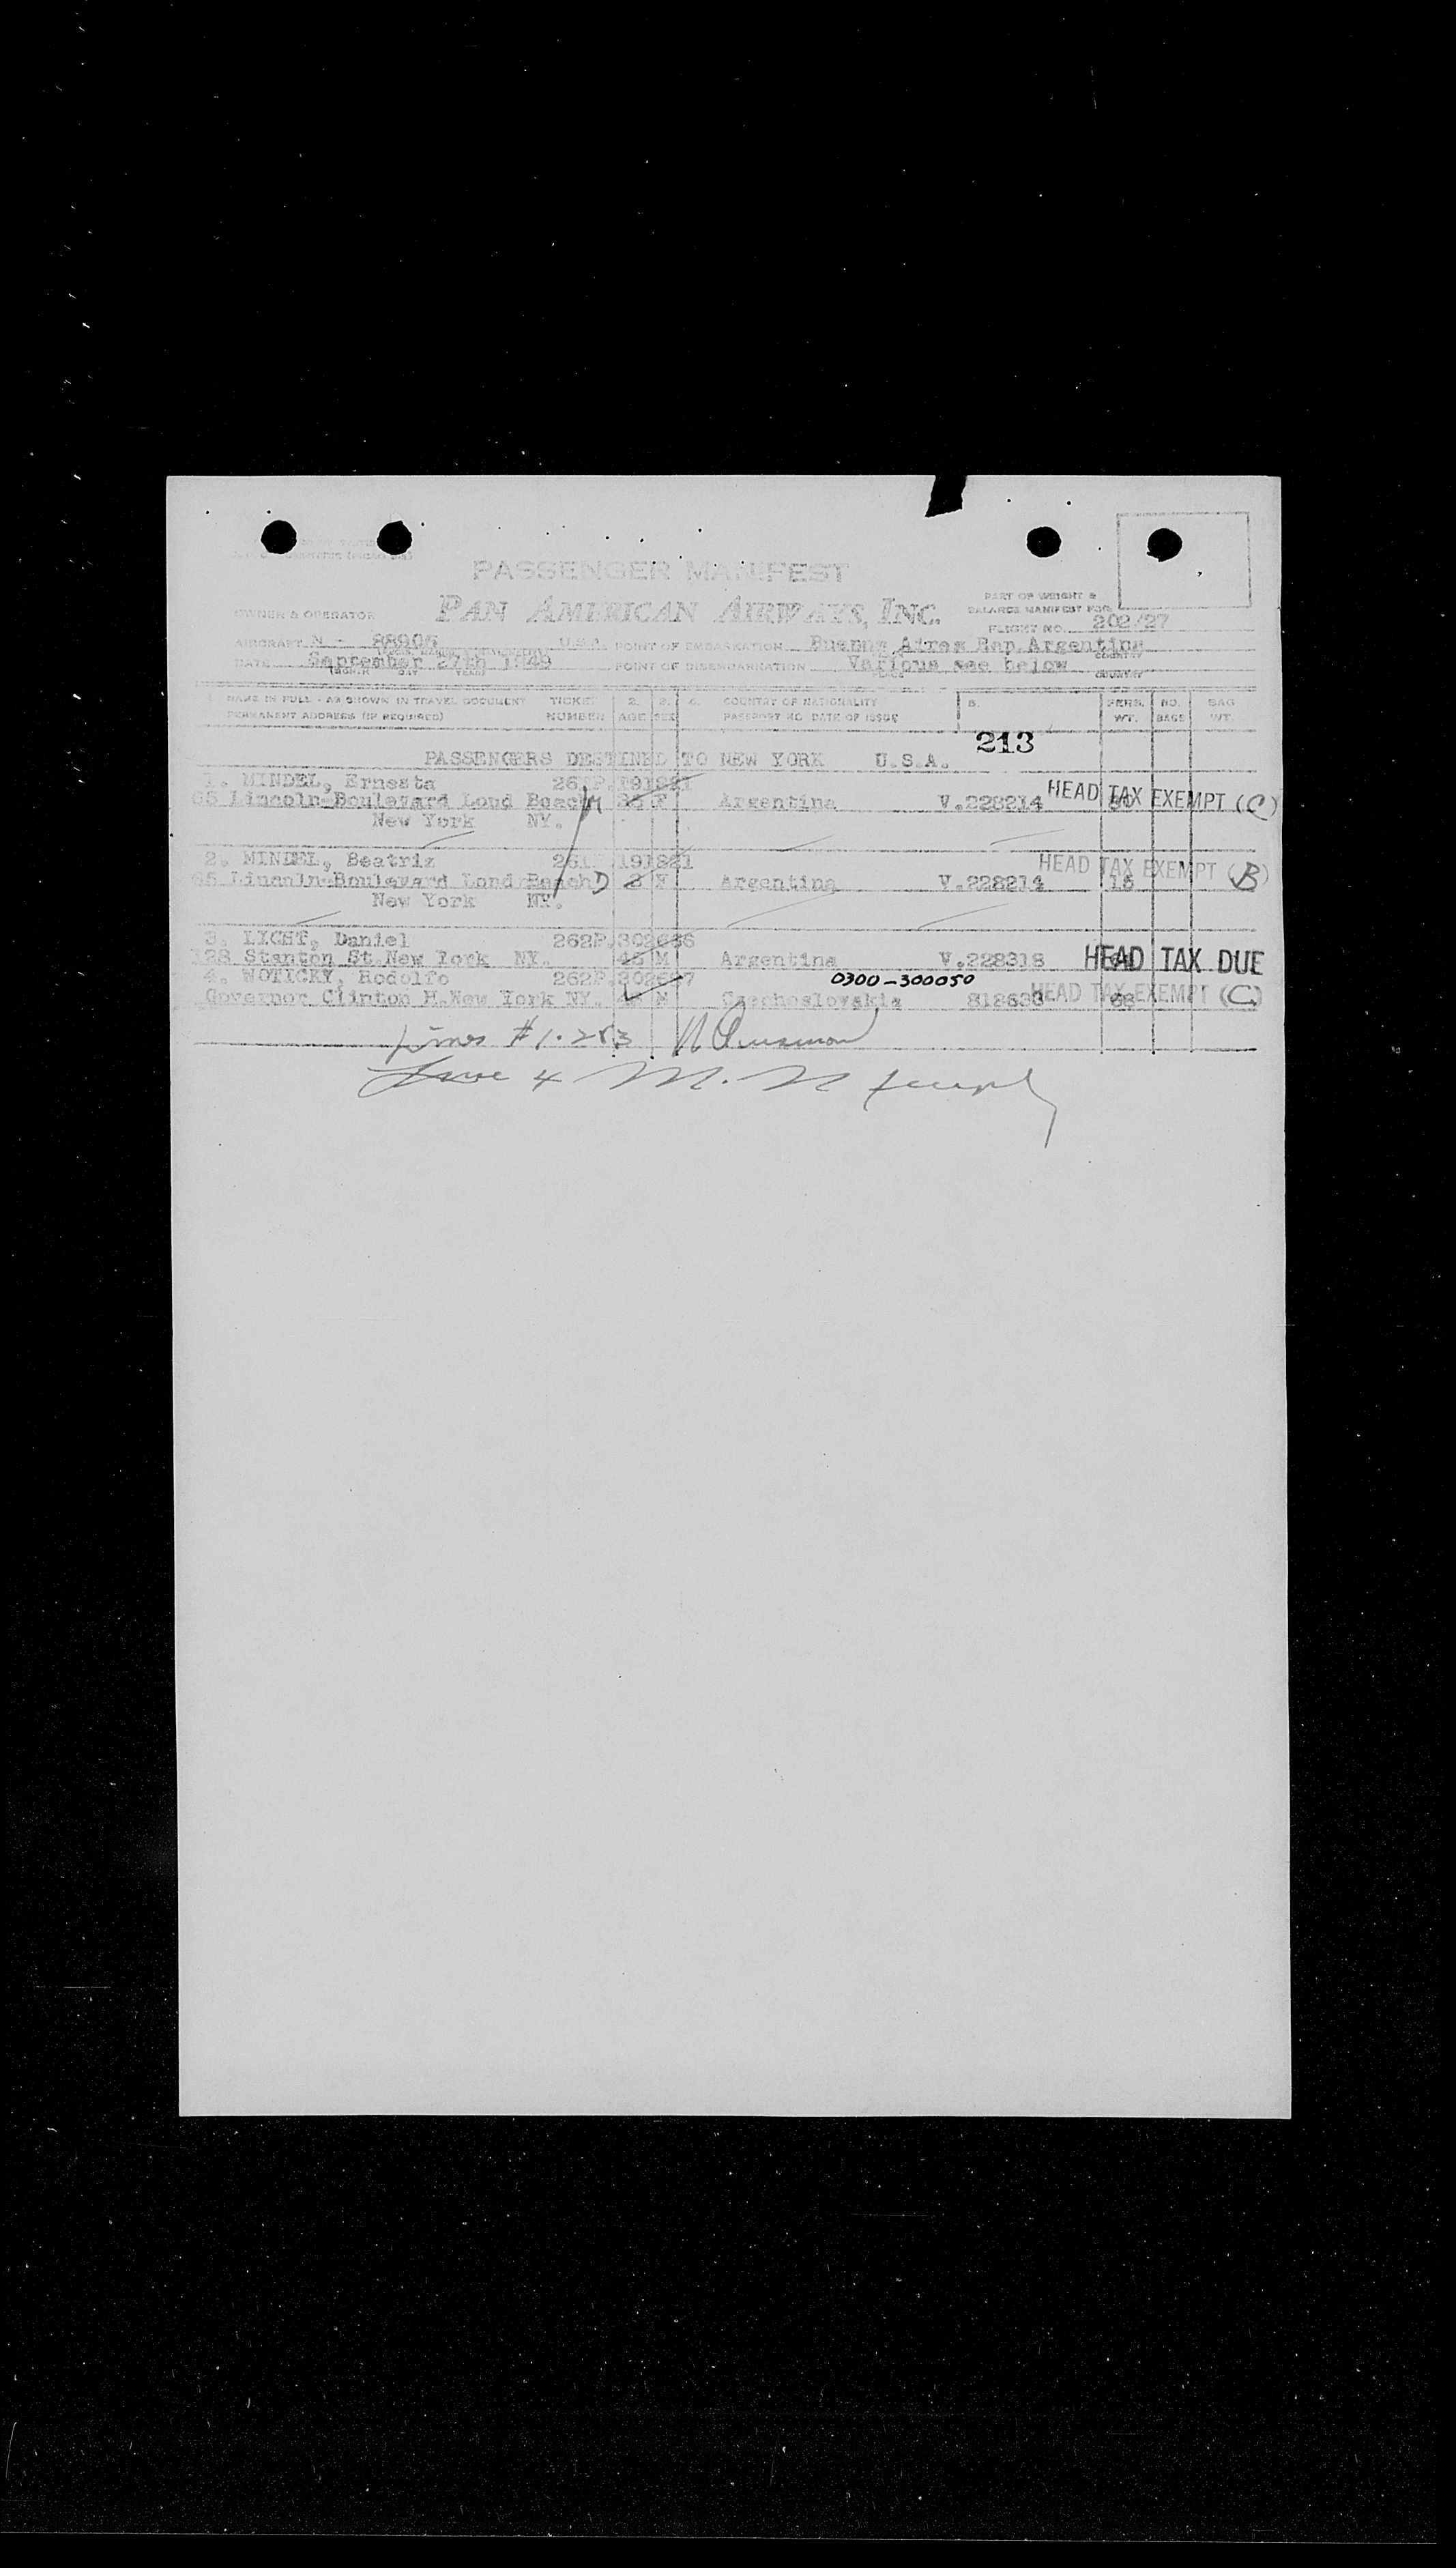 PASSENGER MANIFEST
OWNER & OPERATOR PAN AMERICAN AIRWAYS, INC.
PART OF WEIGHT &
BALANCE MANIFEST FOR
FLIGHT NO. 202/27
AIRCRAFT N - 88906 U.S.A. POINT OF EMBARKATION Buenos Aires Rep Argentina
DATE September 27th 1949 POINT OF DISEMBARKATION Various see below
(MONTH DAY YEAR) PLACE COUNTRY
NAME IN FULL - AS SHOWN IN TRAVEL DOCUMENT TICKET 2. 3. 4. COUNTRY OF NATIONALITY 5. PERS. NO. BAG
PERMANENT ADDRESS (IF REQUIRED) NUMBER AGE SEX PASSPORT NO. DATE OF ISSUE WT. BAGS WT.
213
PASSENGERS DESTINED TO NEW YORK U.S.A.
1. MINDEL, Ernesta 261P.191821
65 Lincoln-Boulevard Lond Beach M F Argentina V.228214 HEAD TAX EXEMPT (C)
New York NY.
2. MINDEL, Beatriz 261 .191821
65 Lincoln-Boulevard Lond Beach D F Argentina V.228214 15 HEAD TAX EXEMPT (B)
New York NY.
3. LIGHT, Daniel 262P.302686
128 Stanton St.New York NY. M Argentina V.228318 HEAD TAX DUE
4. WOTICKY, Rodolfo 262P.302687 0300-300050
Governor Clinton H.New York NY. M Czechoslovakia 818633 68 HEAD TAX EXEMPT (C)
Lines #1.2&3
Line 4 M. N